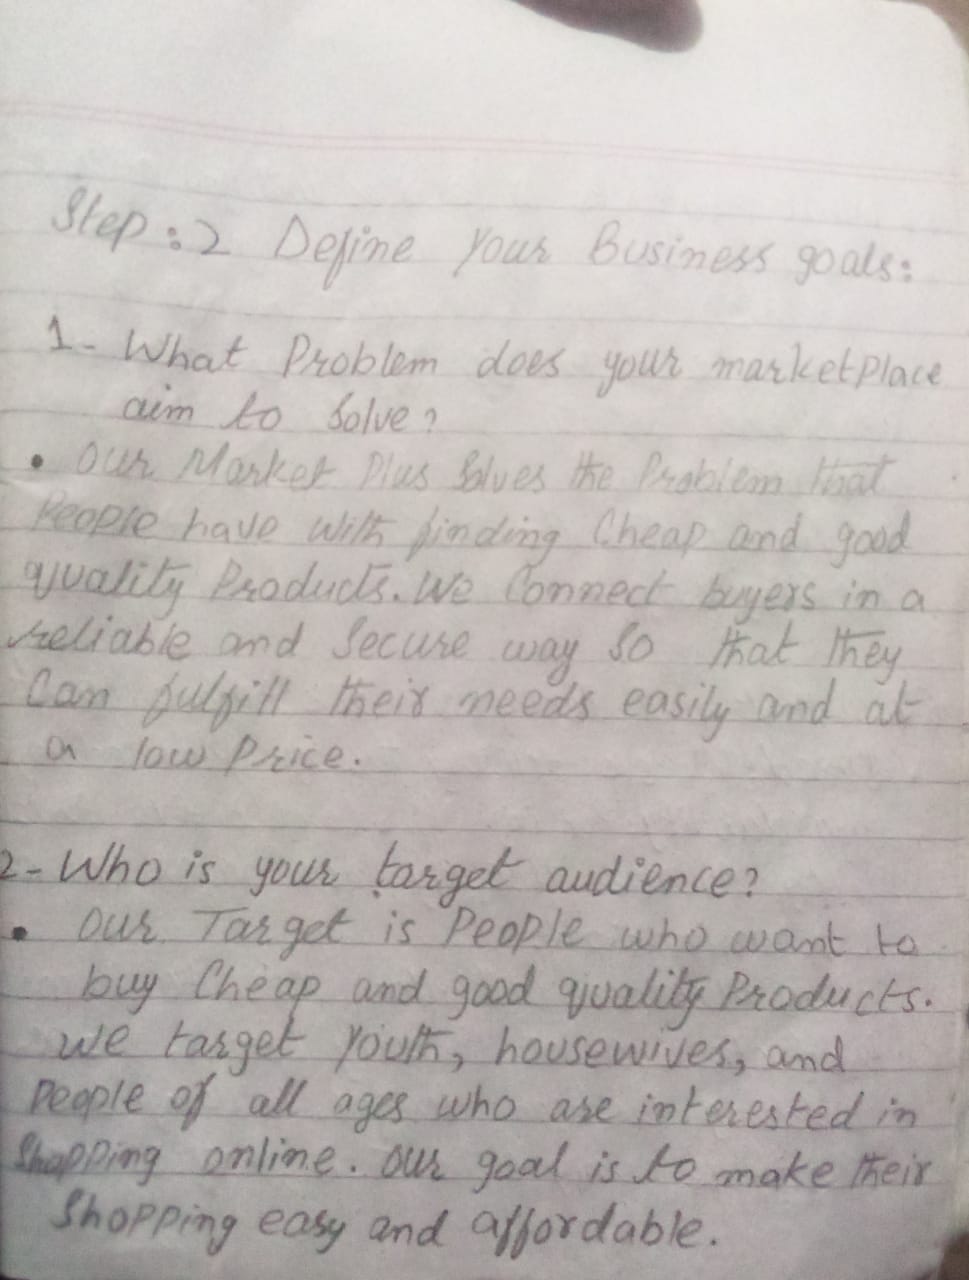 Step:2 Define your Business goals:
1- What Problem does your marketplace
aim to Solve?
• our Market Plus Solves the Problem that
People have with finding Cheap and good
quality Products. We Connect buyers in a
reliable and Secure way So that they
Can fulfill their needs easily and at
a low Price.
2- Who is your target audience?
• our Target is People who want to
buy Cheap and good quality Products.
we target Youth, housewives, and
People of all ages who are interested in
Shopping online. our goal is to make their
Shopping easy and affordable.